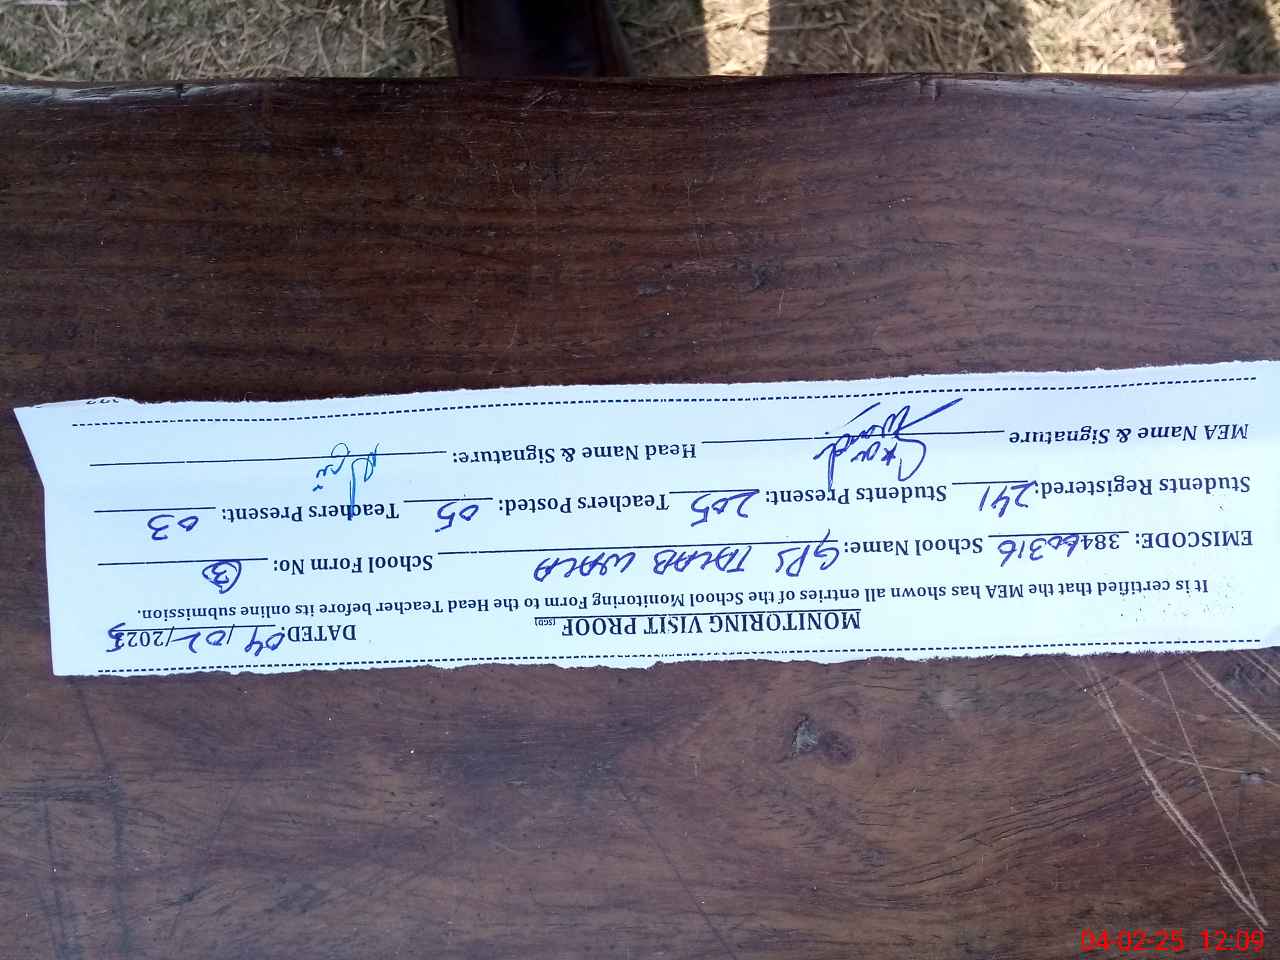 MONITORING VISIT PROOF (SGD) DATED: 04/02/2025
It is certified that the MEA has shown all entries of the School Monitoring Form to the Head Teacher before its online submission.
EMISCODE: 38460316 School Name: GPS TALAB WALA School Form No: 3
Students Registered: 241 Students Present: 205 Teachers Posted: 05 Teachers Present: 03
MEA Name & Signature Head Name & Signature:
04-02-25 12:09